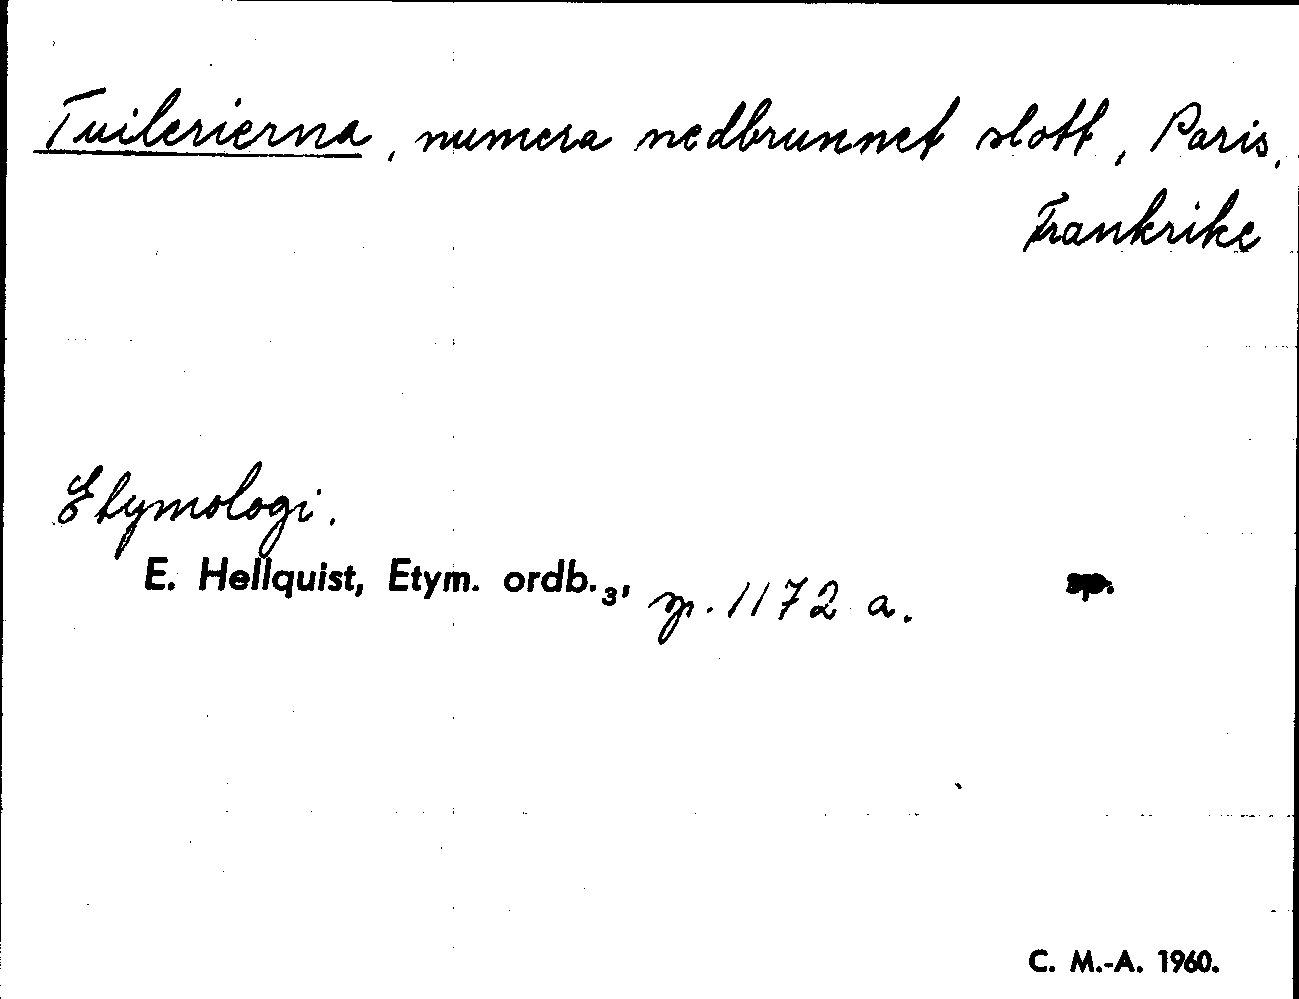 Tuilerierna, numera nedbrunnet slott, Paris,
Frankrike
Etymologi.
E. Hellquist, Etym. ordb.₃, p. 1172 a. sp.
C. M.-A. 1960.